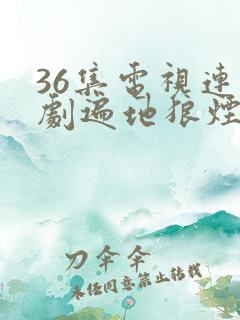 36集電視連
劇遍地狼煙
刀伞伞
未经同意禁止转载